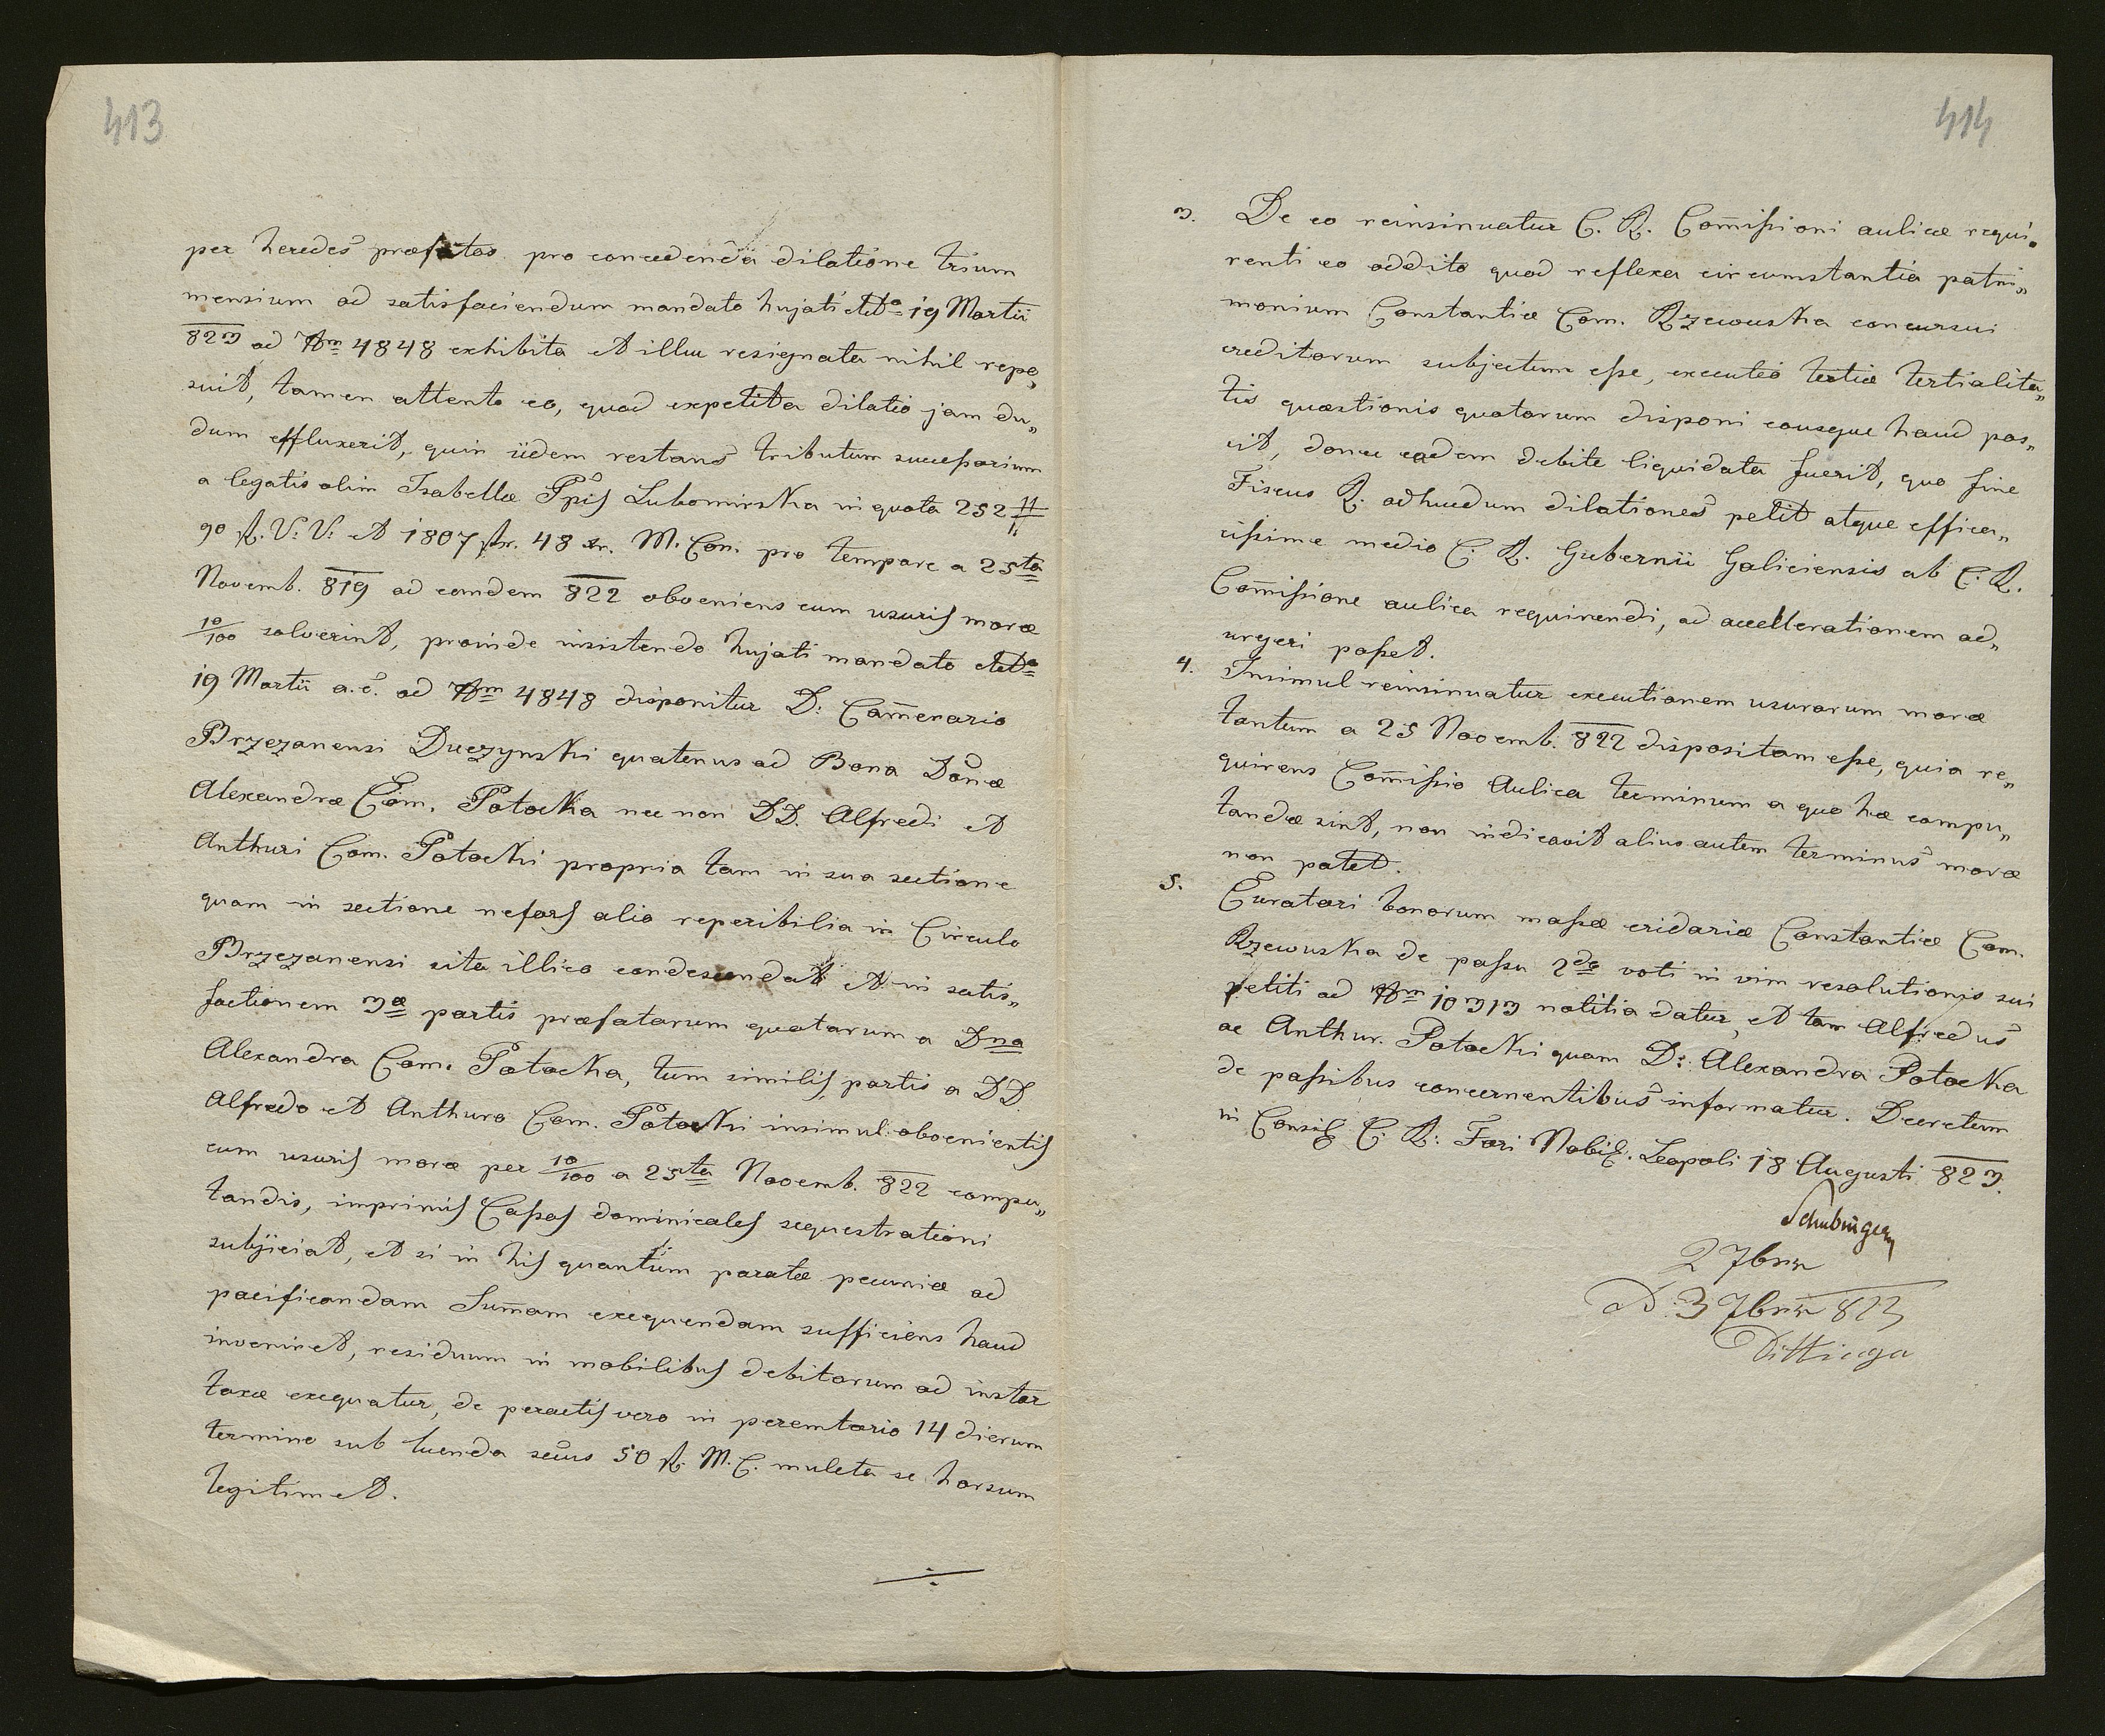 413
per heredes præfatos pro concedenda dilatione trium
mensium ad satisfaciendum mandato hujati ddto 19 Martii
823 ad Nrm 4848 exhibita et illuc resignata nihil repo„
suit, tamen attento eo, quod expetita dilatio jam du„
dum effluxerit, quin iidem restans tributum successorium
a legatis olim Isabellæ Ppis Lubomirska in quota 252 #
90 fl. V. V. et 1807 fr. 48 xr. M. Con. pro tempore a 25ta
Novemb. 819 ad eandem 822 obveniens cum usuris moræ
10/100 solverint, proinde insistendo hujati mandato ddto
19 Martii a. c. ad Nrm 4848 disponitur D: Camerario
Brzezanensi Duczynski quatenus ad Bona Donæ
Alexandræ Com. Potocka nec non DD. Alfredi et
Anthuri Com. Potocki propria tam in sua sectione
quam in sectione nefors alio reperibilia in Circulo
Brzezanensi sita illico condescendat et in satis„
factionem 3æ partis præfatarum quotarum a Dna
Alexandra Com. Potocka, tum similis partis a DD.
Alfredo et Anthuro Com. Potocki insimul obvenientis
cum usuris moræ per 10/100 a 25ta Novemb. 822 compu„
tandis, imprimis Cassas dominicales sequestrationi
subjiciat, et si in his quantum paratæ pecuniæ ad
pacificandam Sumam exequendam sufficiens haud
inveniret, residuum in mobilibus debitorum ad instar
taxæ exequatur, de peractis vero in peremtorio 14 dierum
termino sub luenda secus 50 fl. M. C. mulcta se horsum
legitimet.
414
3. De eo reinsinuatur C. R. Comissioni aulicæ requi„
renti eo addito quod reflexa circumstantia patri„
monium Constantiæ Com. Rzewuska concursui
creditorum subjectum esse, executio tertiæ tertialita„
tis quæstionis quotarum disponi eousque haud pos„
sit, donec eadem debite liquidata fuerit, quo fine
Fiscus R. adhucdum dilationes petit atque effica„
cissime medio C. R. Gubernii Galiciensis ab C. R.
Comissione aulica requirendi, ad accellerationem ad„
urgeri posset.
4. Insimul reinsinuatur executionem usurarum moræ
tantum a 25 Novemb. 822 dispositam esse, quia re„
quirens Comissio Aulica terminum a quo hæ compu„
tandæ sint, non indicavit alius autem terminus moræ
non patet.
5. Curatori bonorum massæ cridariæ Constantiæ Com.
Rzewuska de passu 2do voti in vim resolutionis sui
petiti ad Nrm 10313 notitia datur, et tam Alfredus
ac Anthur. Potocki quam D: Alexandra Potocka
de passibus concernentibus informatur. Decretum
in Consil. C. R: Fori Nobil. Leopoli 18 Augusti 823.
2 7bris
3 7bris 823